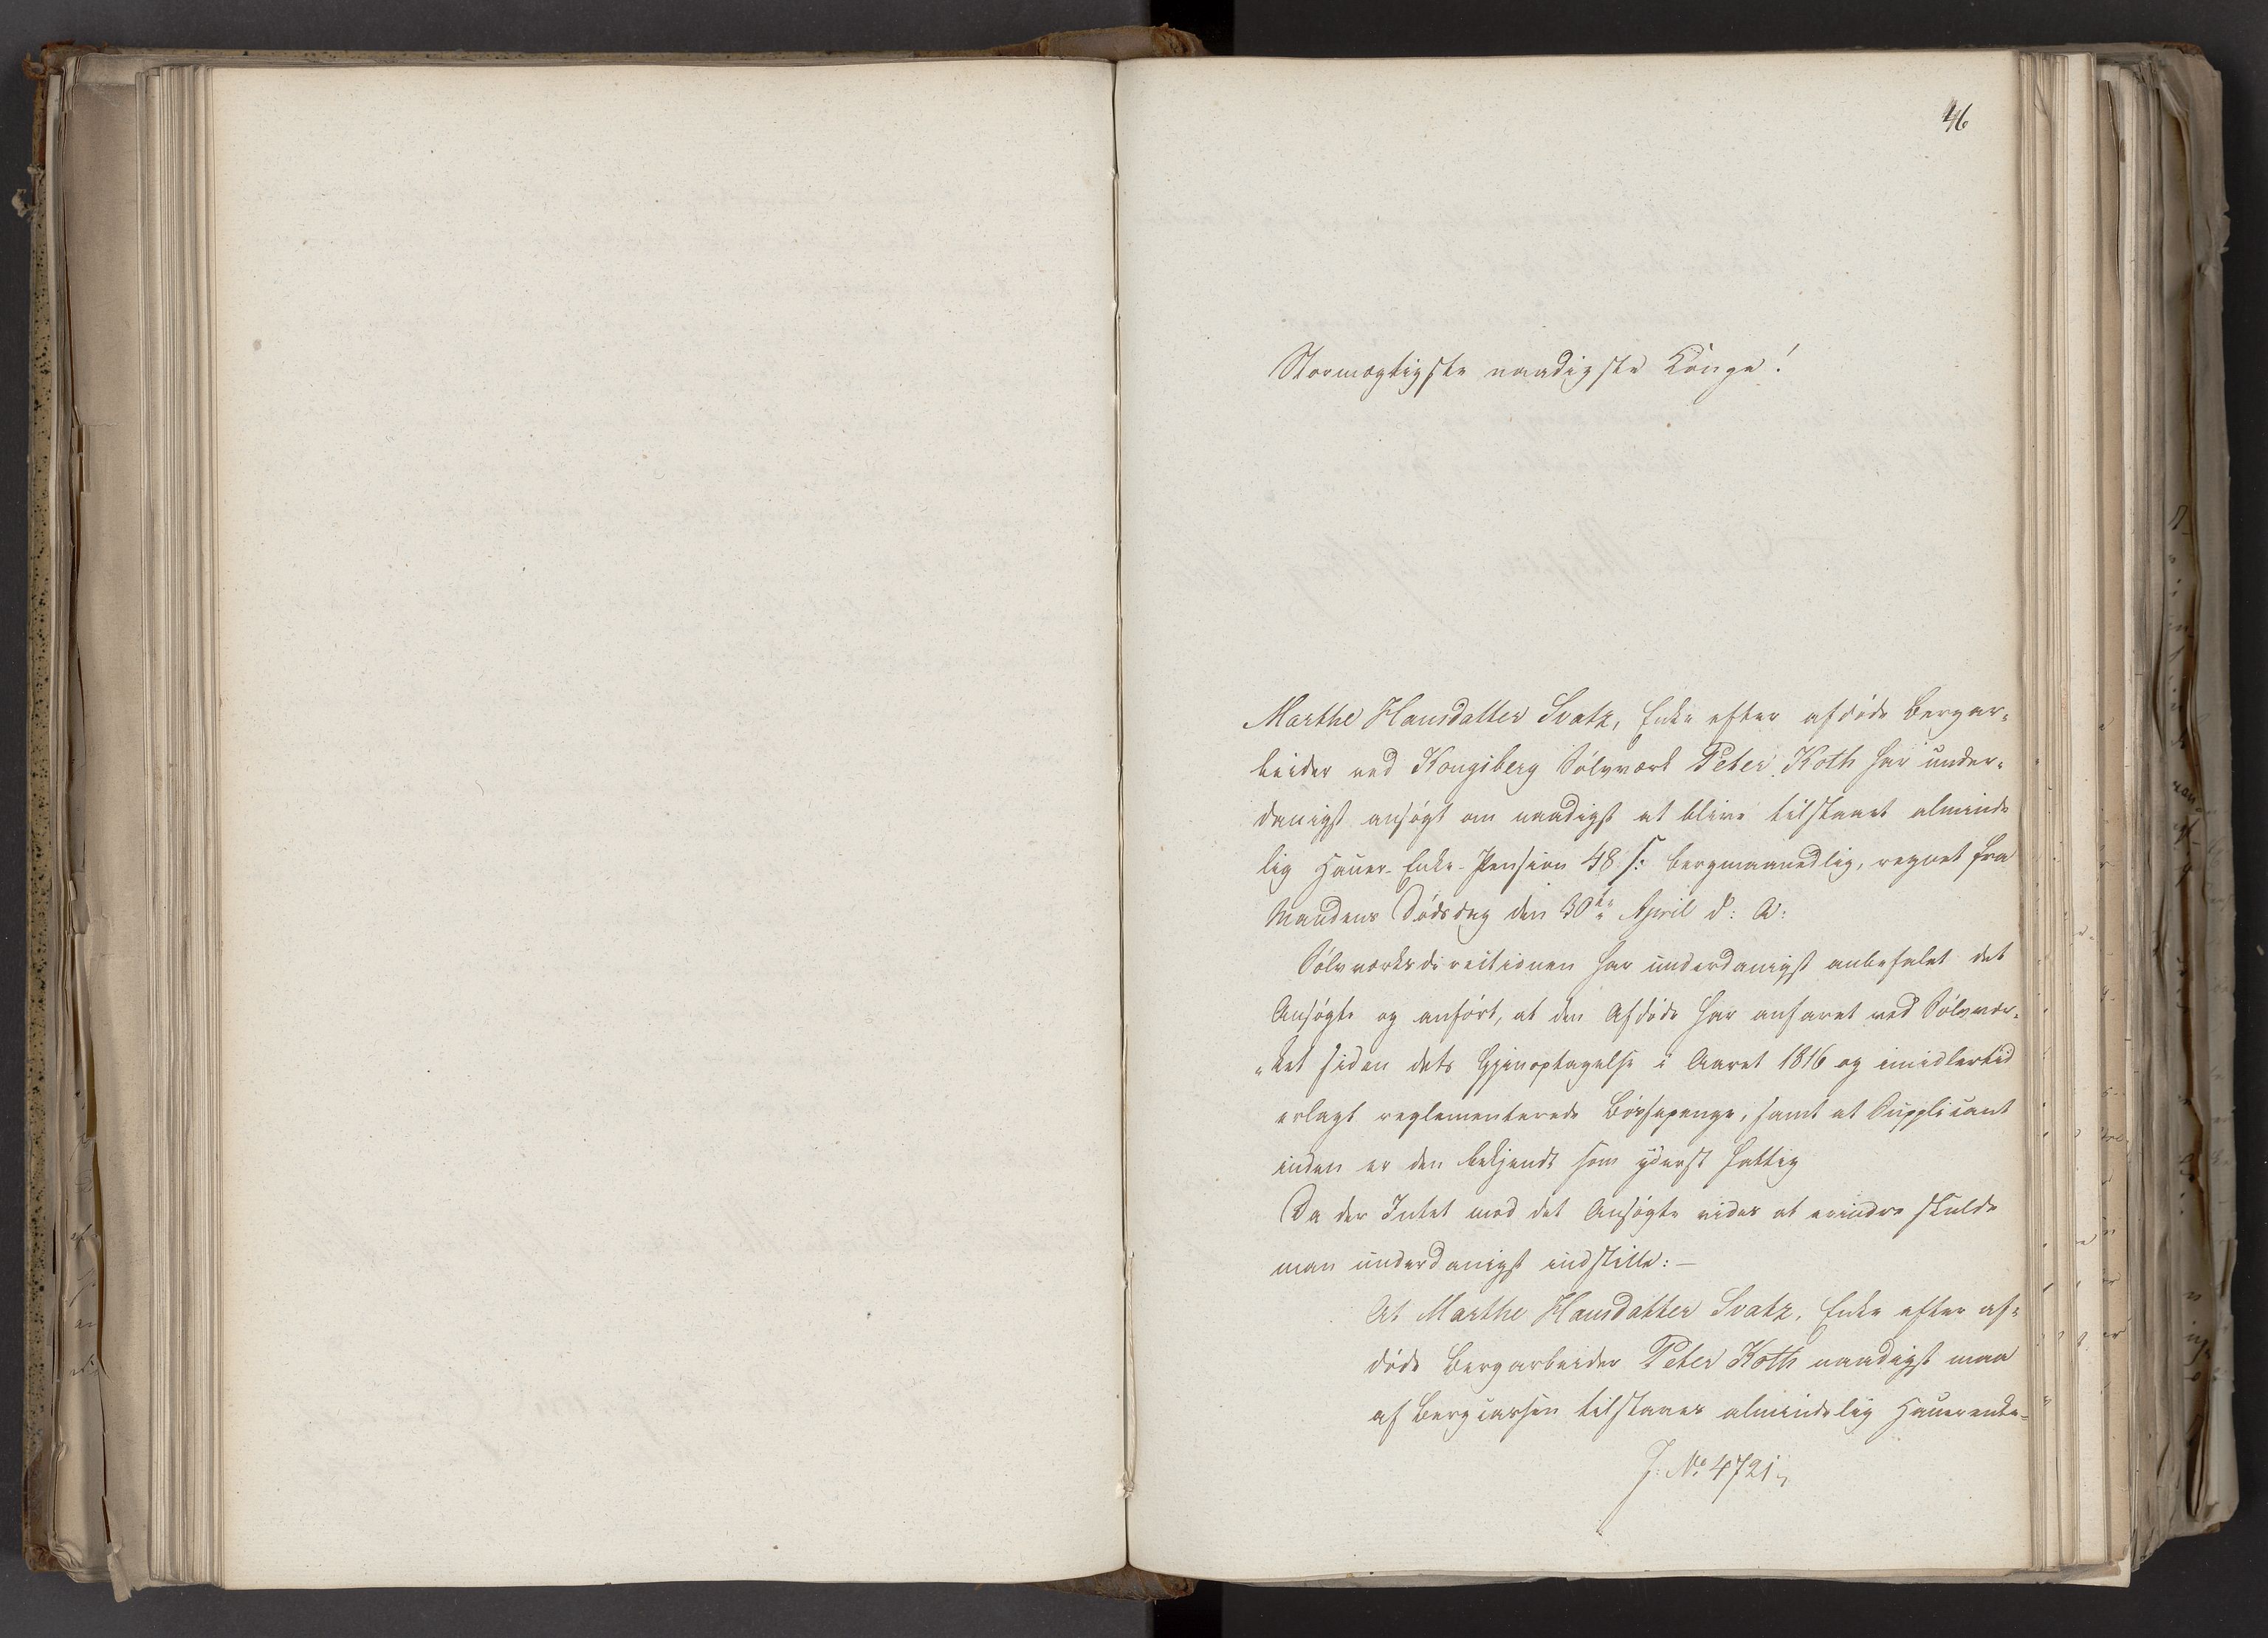 46
Stormægtigste naadigste Konge!
Marthe Hansdatter Svatz, Enke efter afdøde Bergar-
beider ved Kongsberg Sølvværk Peter Koth har under-
danigst ansøgt om naadigst at blive tilstaaet alminde
lig Hauer-Enke-Pension 48 s: bergmaanedlig, regnet fra
Mandens Dødsdag den 30te April d: A:
Sølvværksdirectionen har underdanigst anbefalet det
Ansøgte og anført, at den Afdøde har anfaret ved Sølvvær-
"ket siden dets Gjenoptagelse i Aaret 1816 og imidlertid
erlagt reglementerede Bøssepenge, samt at Supplicant
inden er den bekjendt som yderst fattig
Da der Intet mod det Ansøgte vides at erindre skulde
man underdanigst indstille:-
At Marthe Hansdatter Svatz, Enke efter af-
døde Bergarbeider Peter Koth naadigst maa
af Bergcassen tilstaaes almindelig Hauerenke-
J: No 4721